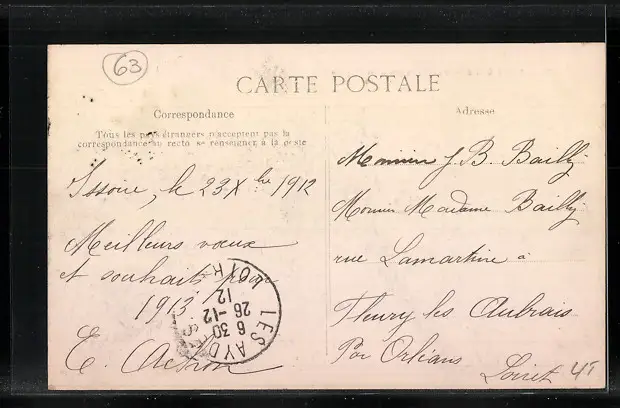 63
CARTE POSTALE
Correspondance
Tous les pays étrangers n'acceptent pas la
correspondance au recto se renseigner à la poste
Issoire, le 23 Xbre 1912
Meilleurs vœux
et souhaits pour
1913
E.
LES AYD
6 30
26-12
12
Adresse
J. B. Bailly
Madame Bailly
rue Lamartine à
Fleury les Aubrais
Par Orléans
Loiret
45